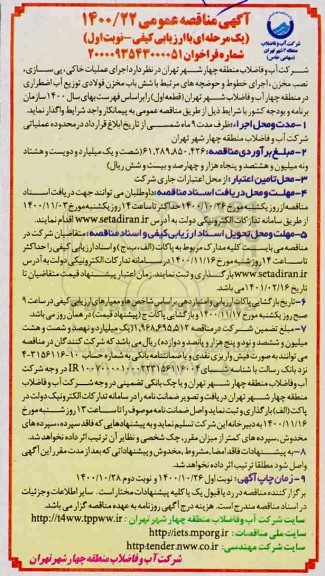 آگهی مناقصه عمومی ۱۴۰۰/۲۲
(یک مرحله‌ای با ارزیابی کیفی – نوبت اول)
شماره فراخوان ۲۰۰۰۰۹۳۵۴۳۰۰۰۰۵۱
شرکت آب و فاضلاب
منطقه ۴ شهر تهران
(سهامی خاص)
شرکت آب و فاضلاب منطقه چهار شهر تهران در نظر دارد اجرای عملیات خاکی، پی‌سازی،
نصب مخزن، اجرای خطوط و حوضچه های مرتبط با شش باب مخزن فولادی توزیع آب اضطراری
در منطقه چهار آب و فاضلاب شهر تهران (قطعه اول) را بر اساس فهرست بهای سال ۱۴۰۰ سازمان
برنامه و بودجه کشور با شرایط ذیل از طریق مناقصه عمومی به پیمانکار واجد شرایط واگذار نماید.
۱- مدت و محل اجراء: ظرف مدت ۹ ماه شمسی از تاریخ ابلاغ قرارداد در محدوده عملیاتی
منطقه چهار شهر تهران
۲- مبلغ برآوردی مناقصه: ۶۱,۲۸۹,۸۵۰,۴۲۶ (شصت و یک میلیارد و دویست و هشتاد
و نه میلیون و هشتصد و پنجاه هزار و چهارصد و بیست و شش ریال)
۳- محل تامین اعتبار: از محل اعتبارات جاری شرکت
۴- مهلت و محل دریافت اسناد مناقصه: داوطلبان می توانند جهت دریافت اسناد
مناقصه از روز یکشنبه مورخ ۱۴۰۰/۱۰/۲۶ حداکثر تا ساعت ۱۴ روز یکشنبه مورخ ۱۴۰۰/۱۱/۰۳
از طریق سامانه تدارکات الکترونیکی دولت به آدرس www.setadiran.ir اقدام نمایند.
۵- مهلت و محل تحویل اسناد ارزیابی کیفی و اسناد مناقصه: متقاضیان شرکت در
مناقصه می بایست کلیه مدارک مربوط به پاکات (الف، ب، ج) و اسناد ارزیابی کیفی را حداکثر
تا ساعت ۱۴ روز شنبه مورخ ۱۴۰۰/۱۱/۱۶ در سامانه تدارکات الکترونیکی دولت به آدرس
www.setadiran.ir بارگذاری و ثبت نمایند. زمان اعتبار پیشنهاد قیمت متقاضیان تا
تاریخ ۱۴۰۱/۰۲/۱۶ می باشد.
۶- تاریخ بازگشایی پاکات ارزیابی و امتیازدهی بر اساس شاخص ها و معیارهای ارزیابی کیفی در ساعت ۹
صبح روز یکشنبه مورخ ۱۴۰۰/۱۱/۱۷ و بازگشایی پاکات ج (پیشنهاد قیمت) در همان روز می باشد.
۷- مبلغ تضمین شرکت در مناقصه ۱,۹۶۸,۶۹۵,۵۱۲ (یک میلیارد و نهصد و شصت و هشت
میلیون و ششصد و نود و پنج هزار و پانصد و دوازده) ریال می باشد که شرکت کنندگان در مناقصه
می توانند به صورت فیش واریزی نقدی و یا ضمانتنامه بانکی به شماره حساب
نزد بانک رسالت با شناسه شبای در وجه شرکت
آب و فاضلاب منطقه چهار شهر تهران و یا چک بانکی تضمینی در وجه شرکت آب و فاضلاب
منطقه چهار شهر تهران دریافت و تصویر ضمانت نامه را در سامانه تدارکات الکترونیک دولت در
پاکت (الف) بارگذاری و ثبت نماید و اصل ضمانت نامه موصوف را تا ساعت ۱۴ روز شنبه مورخ
۱۴۰۰/۱۱/۱۶ به دبیرخانه این شرکت تسلیم نماید و به پیشنهادهایی که فاقد سپرده، سپرده های
مخدوش، سپرده های کمتر از میزان مقرر، چک شخصی و نظایر آن ترتیب اثر داده نخواهد شد.
۸- به پیشنهادات فاقد امضا، مشروط، مخدوش و پیشنهاداتی که بعد از مدت مقرر این آگهی
واصل شود مطلقا ترتیب اثر داده نخواهد شد.
۹- زمان چاپ آگهی: نوبت اول ۱۴۰۰/۱۰/۲۶ و نوبت دوم ۱۴۰۰/۱۰/۲۸
برگزار کننده مناقصه در رد یا قبول یک یا کلیه پیشنهادات مختار است. سایر اطلاعات و جزئیات
در اسناد مناقصه مندرج است. هزینه درج آگهی روزنامه به عهده مناقصه گزار می باشد.
سایت شرکت آب و فاضلاب منطقه چهار شهر تهران : http://t4ww.tppww.ir
سایت ملی مناقصات : http://iets.mporg.ir
سایت شرکت مهندسی: http:tender.nww.co.ir
شرکت آب و فاضلاب منطقه چهار شهر تهران